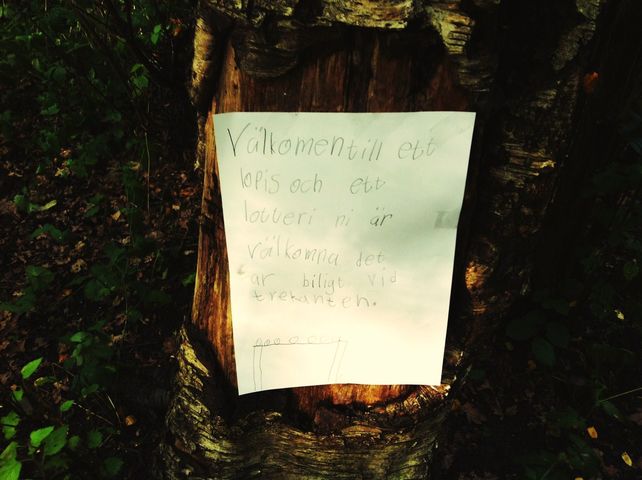 Välkomen till ett
lopis och ett
lotteri ni är
välkomna det
är biligt vid
trekanten.